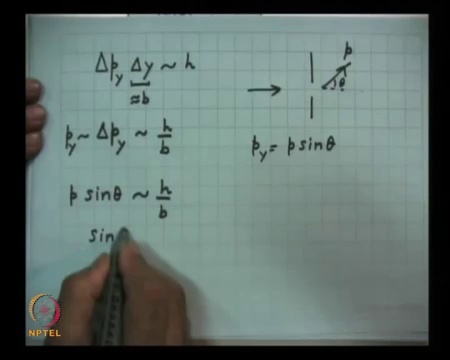 Δp_y Δy ~ h
≈b
p_y ~ Δp_y ~ h/b
p sinθ ~ h/b
sin
p
θ
p_y = p sinθ
NPTEL